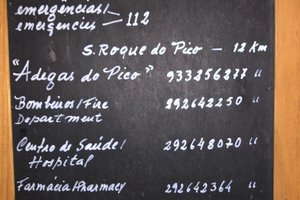 emergências/
emergencies 112
S. Roque do Pico – 12 km
"Adegas do Pico" 933256277 "
Bombeiros/Fire 292642250 "
Department
Centro de Saúde/ 292648070 "
Hospital
Farmácia/Pharmacy 292642364 "